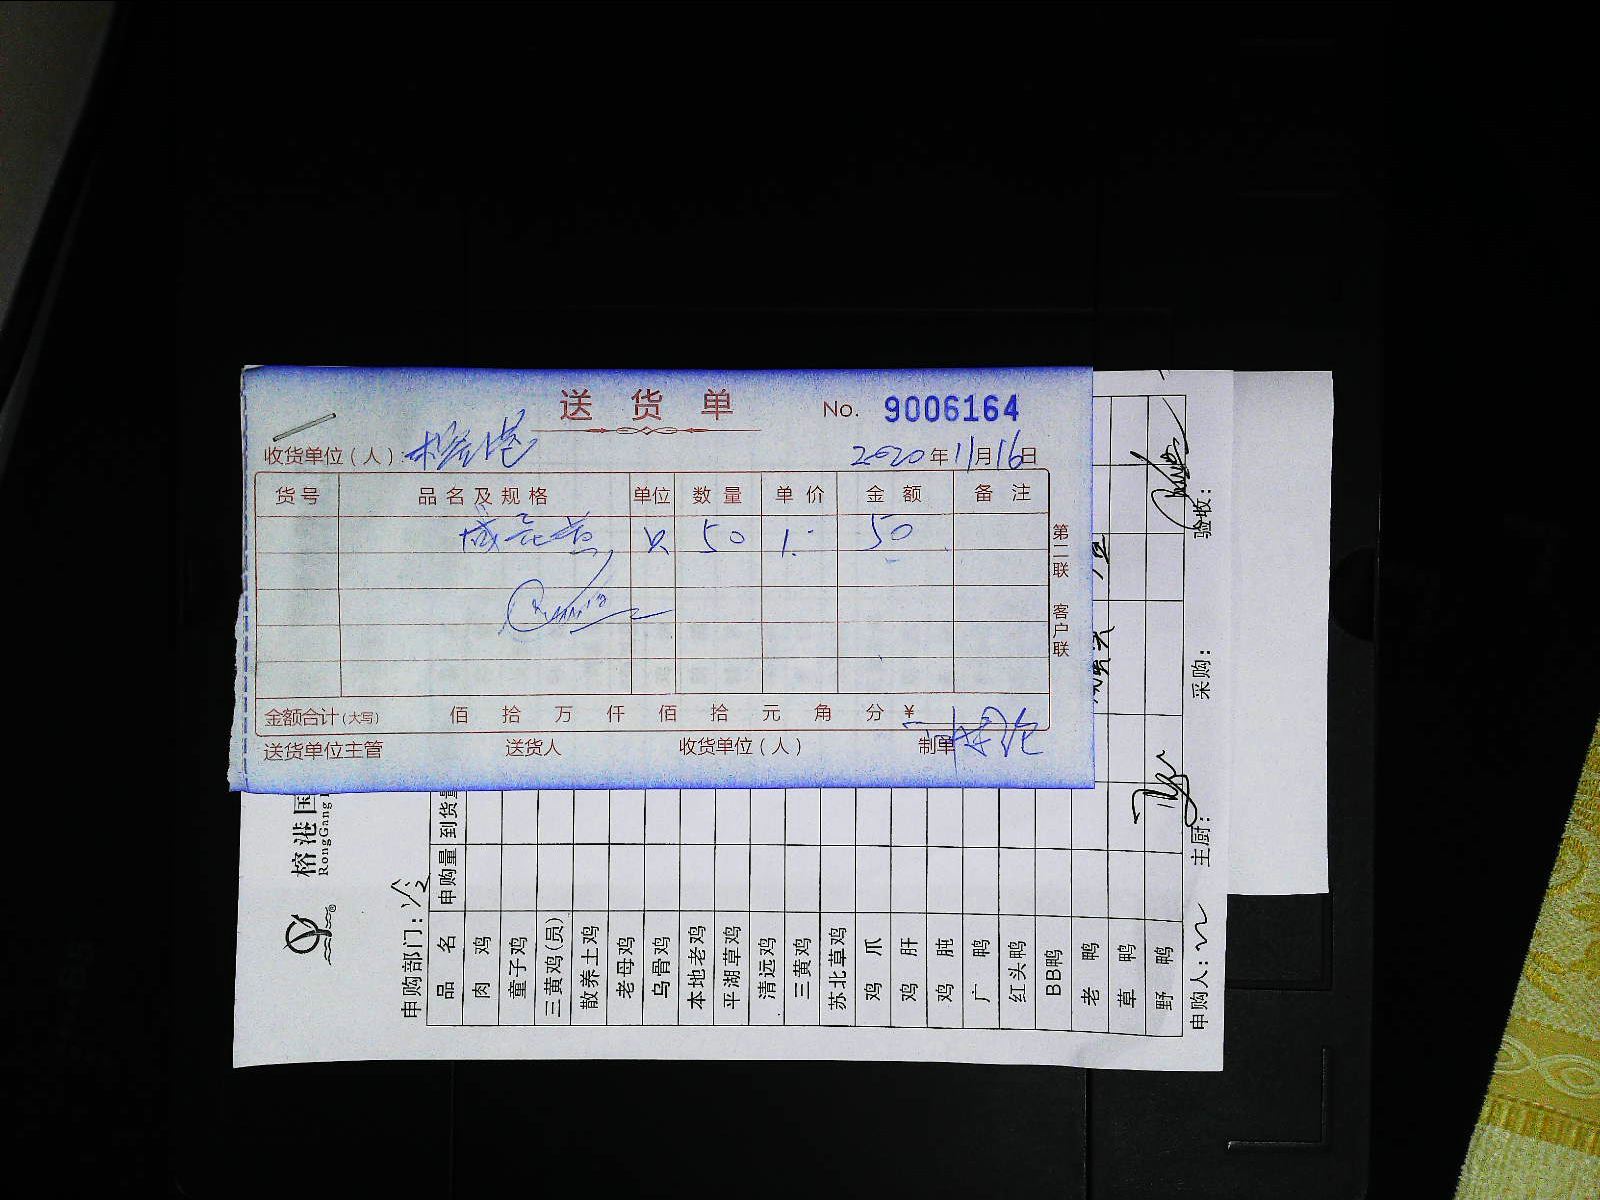 送货单 No. 9006164
收货单位(人): 榕港 2020年11月16日
货号 品名及规格 单位 数量 单价 金额 备注
咸 只 50 1. 50
第二联 客户联
金额合计(大写) 佰 拾 万 仟 佰 拾 元 角 分 ¥
送货单位主管 送货人 收货单位(人) 制单
榕港国
RongGang
申购部门: 冷
品名 申购量 到货量
肉鸡
童子鸡
三黄鸡(员)
散养土鸡
老母鸡
乌骨鸡
本地老鸡
平湖草鸡
清远鸡
三黄鸡
苏北草鸡
鸡爪
鸡肝
鸡肫
广鸭
红头鸭
BB鸭
老鸭
草鸭
野鸭
申购人: 主厨: 采购: 验收: